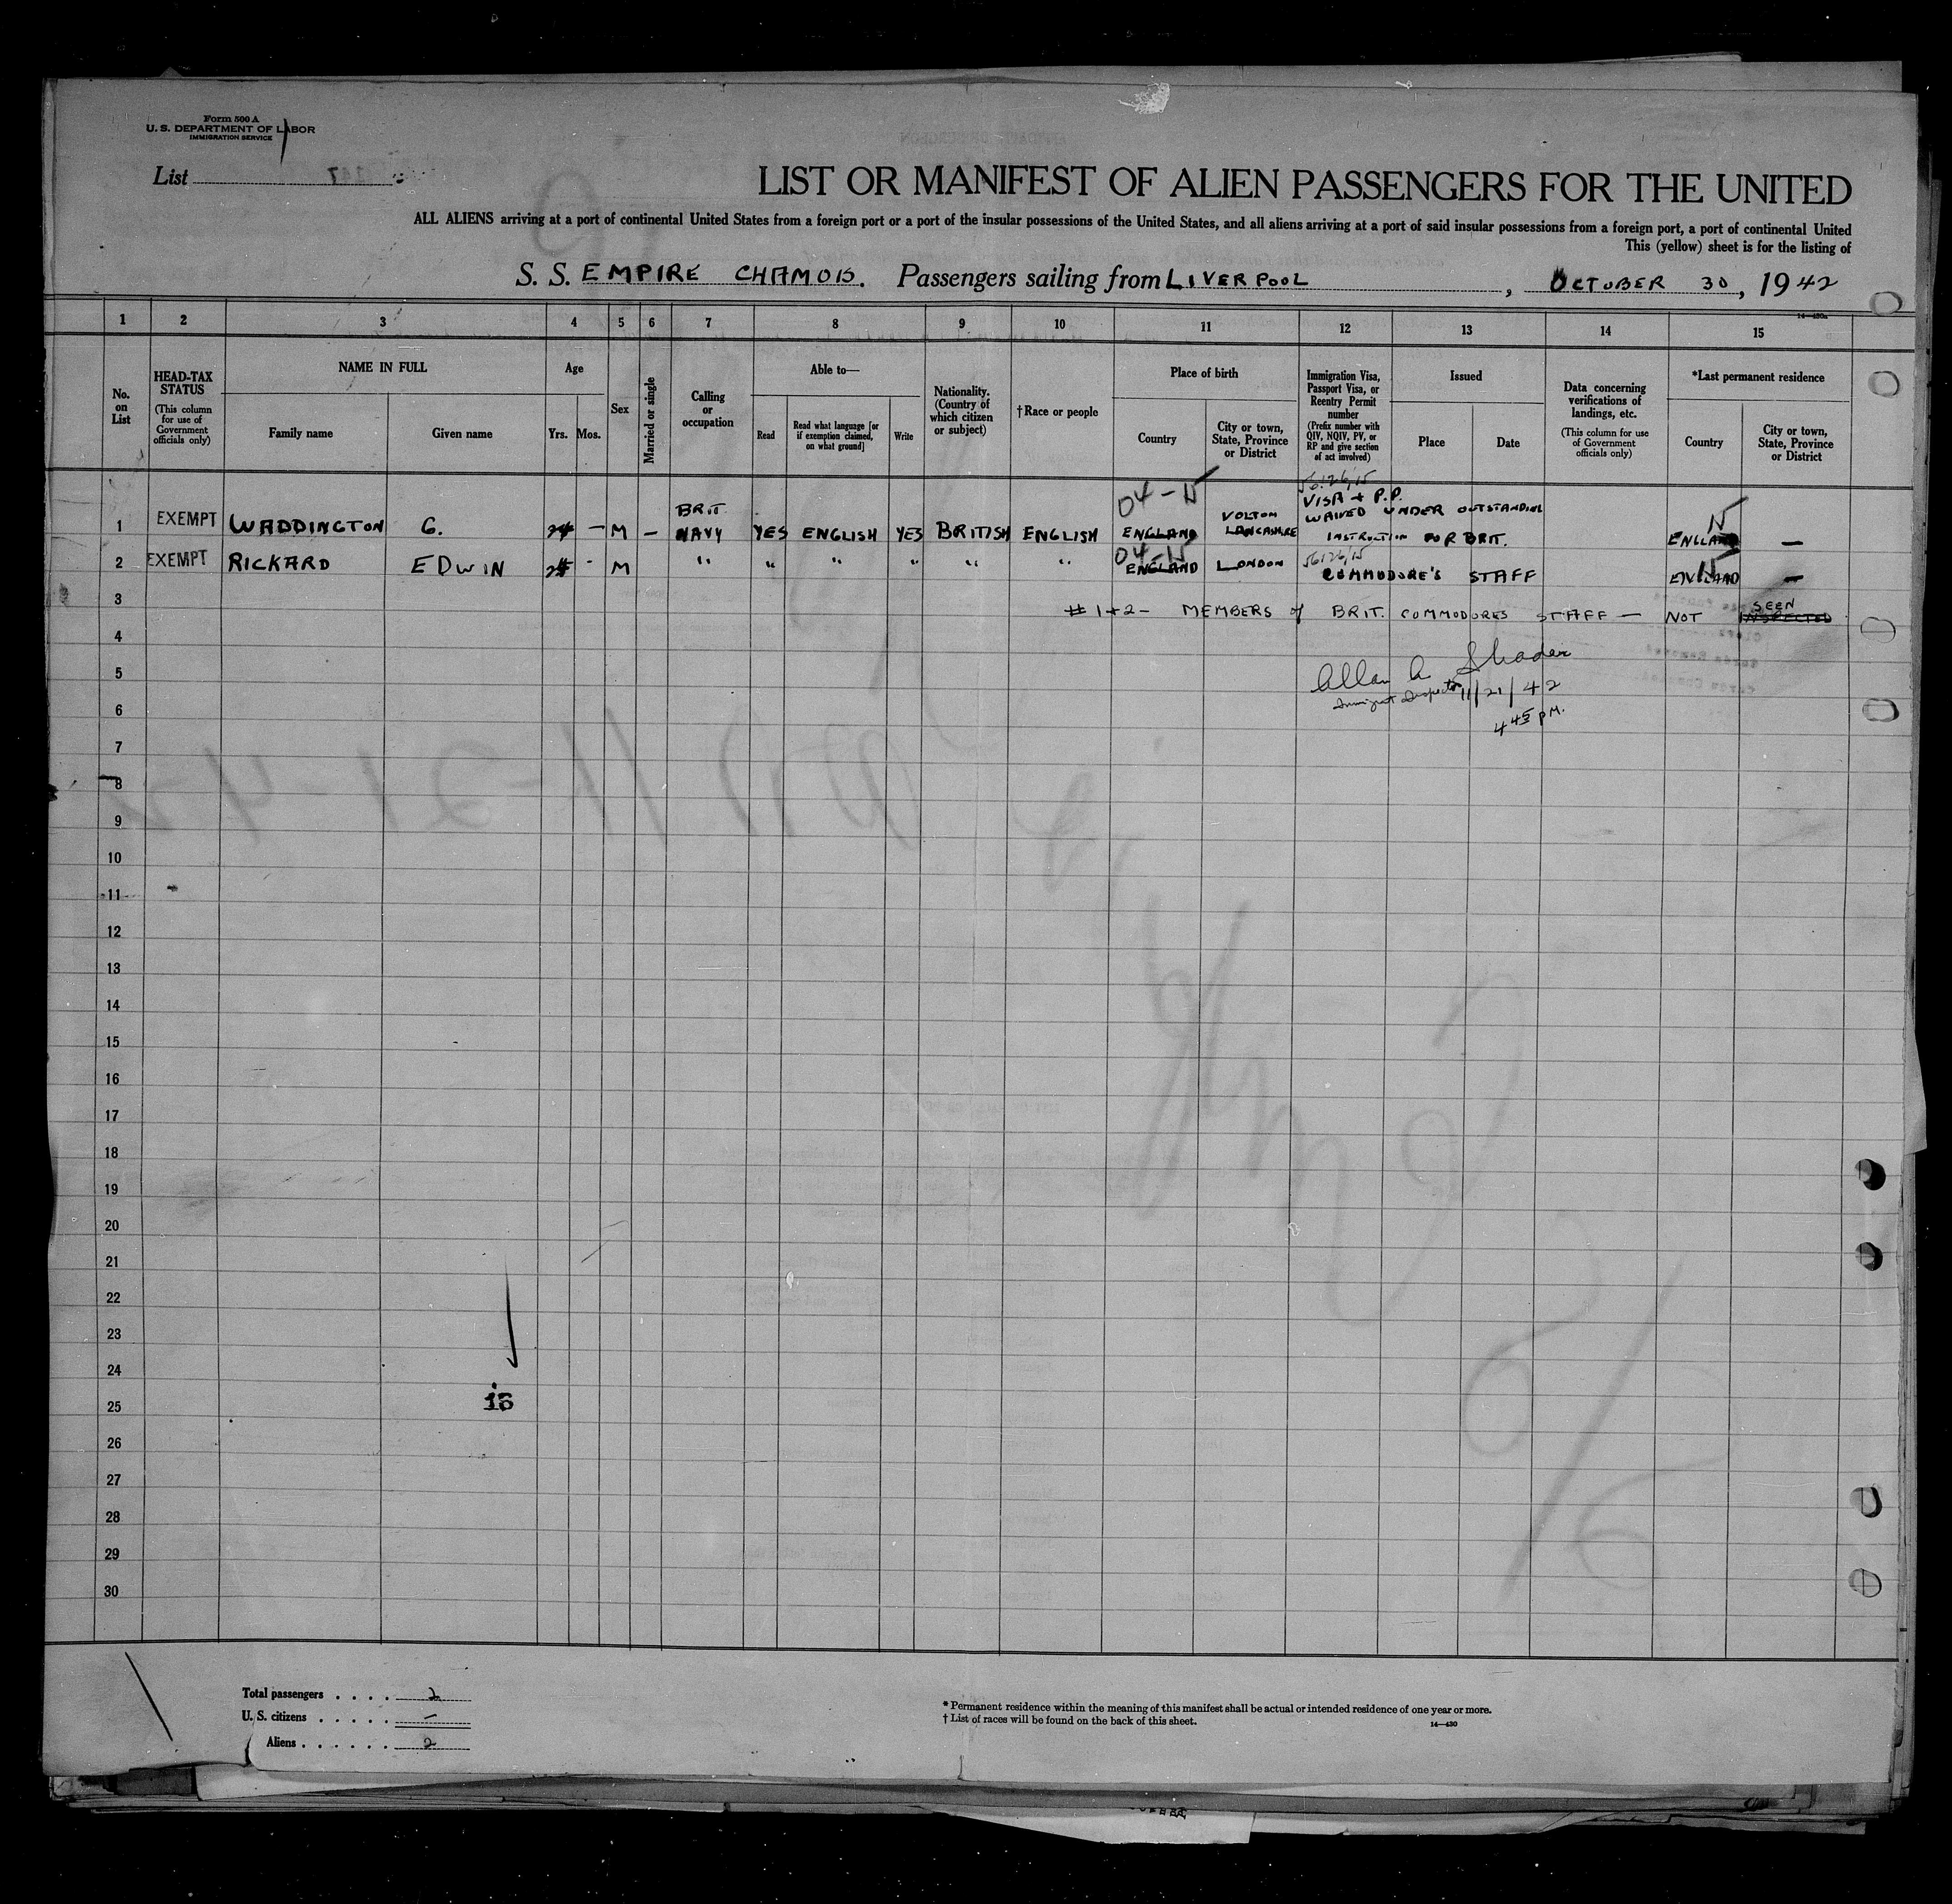 Form 500 A
U. S. DEPARTMENT OF LABOR
IMMIGRATION SERVICE
List
LIST OR MANIFEST OF ALIEN PASSENGERS FOR THE UNITED
ALL ALIENS arriving at a port of continental United States from a foreign port or a port of the insular possessions of the United States, and all aliens arriving at a port of said insular possessions from a foreign port, a port of continental United
This (yellow) sheet is for the listing of
S. S. EMPIRE CHAMOIS. Passengers sailing from LIVERPOOL, OCTOBER 30, 1942
1 2 3 4 5 6 7 8 9 10 11 12 13 14 15
No. on List
HEAD-TAX STATUS (This column for use of Government officials only)
NAME IN FULL
Family name
Given name
Age
Yrs. Mos.
Sex
Married or single
Calling or occupation
Able to—
Read
Read what language [or if exemption claimed, on what ground]
Write
Nationality. (Country of which citizen or subject)
†Race or people
Place of birth
Country
City or town, State, Province or District
Immigration Visa, Passport Visa, or Reentry Permit number (Prefix number with QIV, NQIV, PV, or RP and give section of act involved)
Issued
Place
Date
Data concerning verifications of landings, etc. (This column for use of Government officials only)
*Last permanent residence
Country
City or town, State, Province or District
1 EXEMPT WADDINGTON G. 24 — M — BRIT NAVY YES ENGLISH YES BRITISH ENGLISH 04-N ENGLAND VOLTON LANCASHIRE 56126/15 VISA + P.P. WAIVED UNDER OUTSTANDING INSTRUCTION FOR BRIT. N ENGLAND —
2 EXEMPT RICKARD EDWIN - M " " " " " " 04-N ENGLAND LONDON 56126/15 COMMODORE'S STAFF N ENGLAND —
3 # 1+2 - MEMBERS of BRIT. COMMODORES STAFF — NOT SEEN INSPECTED
4
5 Allan A. Shader
Immigrant Inspector 11/21/42
6 4 45 PM.
7
8
9
10
11
12
13
14
15
16
17
18
19
20
21
22
23
24
25
26
27
28
29
30
Total passengers . . . . 2
U. S. citizens . . . . . –
Aliens . . . . . . 2
* Permanent residence within the meaning of this manifest shall be actual or intended residence of one year or more.
† List of races will be found on the back of this sheet.
14—430